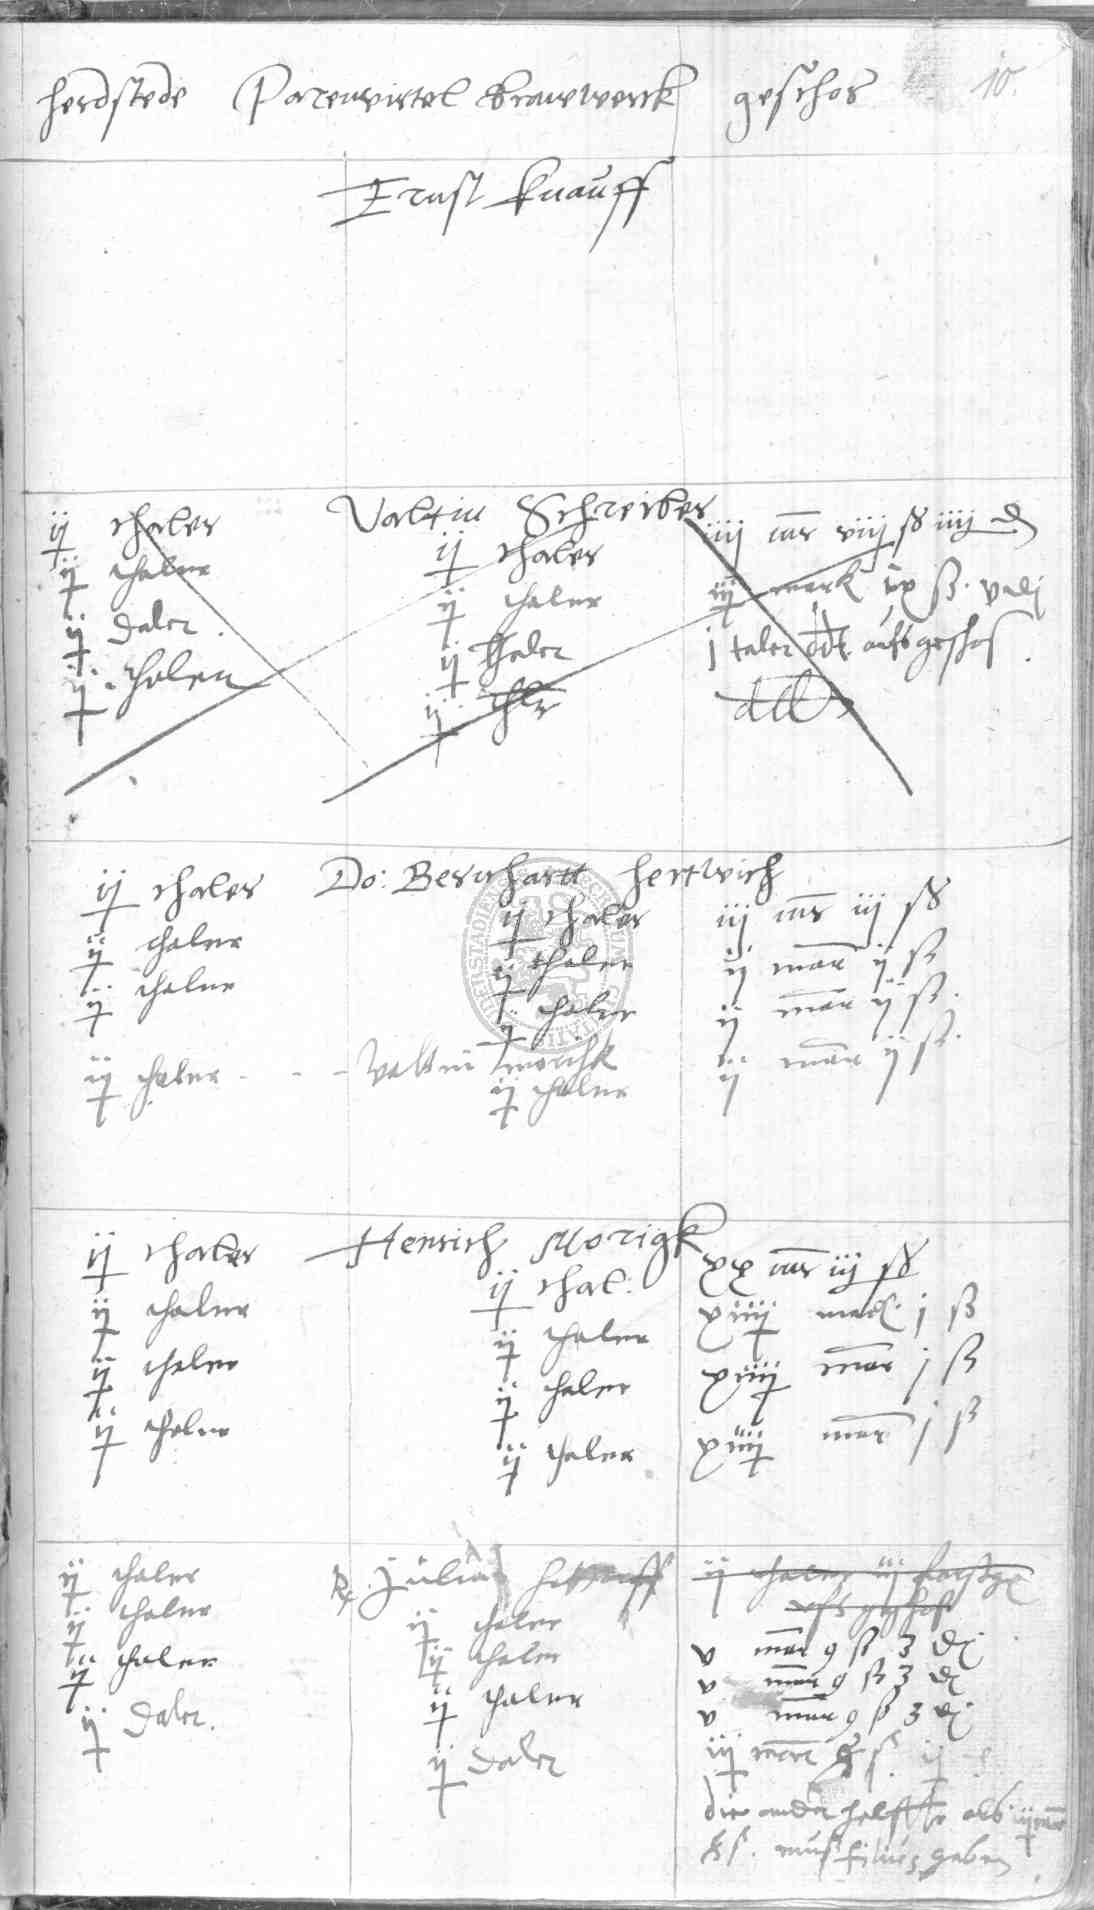 herdstede Parenvirtel brauwerck geschos 10.
Ernst Knauff
Valtin Schreiber
ij thaler ij thaler iiij mr viij ß iiij d
ij thaler ij thaler iij mark ix ß
ij daler ij thaler j taler ddt aufs geschos
ij thaler ij thlr ddt
Do: Bernhartt hertwich
ij thaler ij thaler iij mr iij ß
ij thaler ij thaler ij mar ij ß
ij thaler ij thaler ij mar ij ß.
ij thaler Valtin morihk ij mar ij ß.
ij thaler
Henrich Morigk
ij thaler ij thal: xx mr iij ß
ij thaler ij thaler xiiij mark j ß
ij thaler ij thaler xiiij mar j ß
ij thaler ij thaler xiiij mar j ß
ij thaler Julius ij thaler iij
ij thaler ij thaler ufs geschos
ij thaler ij thaler v mar 9 ß 3 d
ij daler. ij thaler v mar 9 ß 3 d
ij daler v mar 9 ß 3 d
iij mar ß
die ander helffte als ij mar
ß. mus filius geben